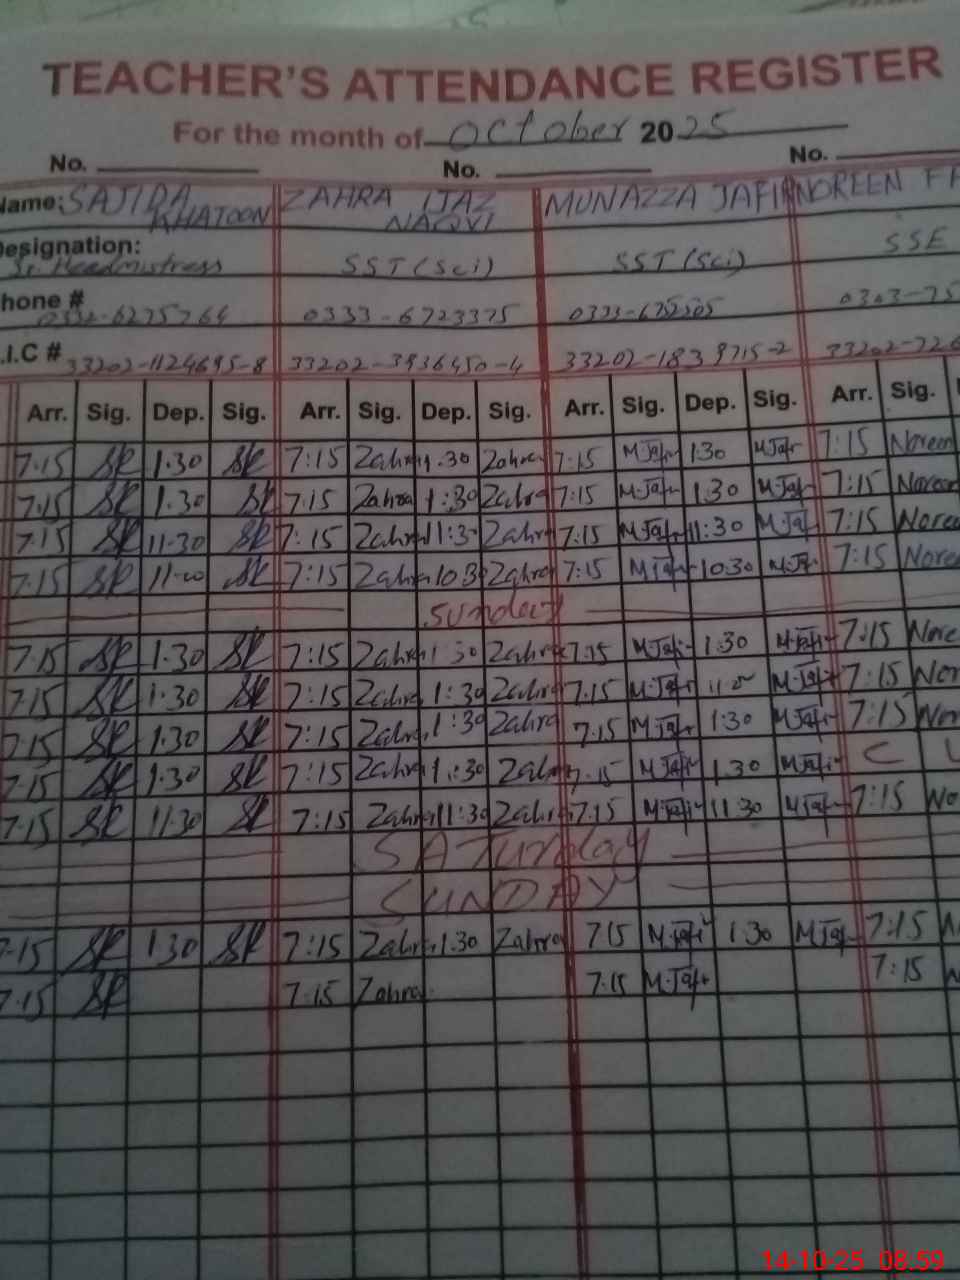 TEACHER'S ATTENDANCE REGISTER
For the month of October 2025
No. No. No.
Name: SAJIDA KHATOON ZAHRA IJAZ NAQVI MUNAZZA JAFIR NOREEN
Designation: Sr. Headmistress SST (Sci) SST (Sci) SSE
hone # 0332-6275764 0333-6723375 0303-75
.I.C # 33202-1124695-8 33202-3936450-4 33202-1839715-2 33202-726
Arr. Sig. Dep. Sig. Arr. Sig. Dep. Sig. Arr. Sig. Dep. Sig. Arr. Sig.
7.15 SK 1.30 SK 7:15 Zahra 1.30 Zahra 7:15 M.Jafr 1:30 M.Jafr 7:15 Noreen
7.15 SK 1.30 SK 7:15 Zahra 1:30 Zahra 7:15 M.Jafr 1:30 M.Jafr 7:15 Noreen
7.15 SK 11-30 SK 7:15 Zahra 11:30 Zahra 7:15 M.Jafr 11:30 M.Jafr 7:15 Noreen
7:15 SK SK 7:15 Zahra 10:30 Zahra 7:15 M.Jafr 10:30 M.Jafr 7:15 Noreen
Sunday
7.15 SK 1.30 SK 7:15 Zahra 1:30 Zahra 7:15 M.Jafr 1:30 M.Jafr 7:15 Nore
7.15 SK 1.30 SK 7:15 Zahra 1:30 Zahra 7.15 M.Jafr M.Jafr 7:15 Nor
7.15 SK 1.30 SK 7:15 Zahra 1:30 Zahra 7:15 M.Jafr 1:30 M.Jafr 7:15 Nor
7.15 SK 1.30 SK 7:15 Zahra 1:30 Zahra 7.15 M.Jafr 1.30 M.Jafr C L
7.15 SK 11.30 SK 7:15 Zahra 11:30 Zahra 7:15 M.Jafr 11:30 M.Jafr 7:15 No
SATurday
SUNDAY
7.15 SK 1.30 SK 7:15 Zahra 1.30 Zahra 7:15 M.Jafr 1:30 M.Jafr 7:15 N
7.15 SK 7:15 Zahra 7:15 M.Jafr 7:15 N
14-10-25 08.59